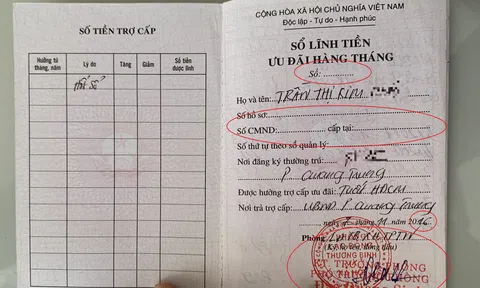 SỐ TIỀN TRỢ CẤP
Hưởng từ tháng, năm
Lý do
Tăng
Giảm
Số tiền được lĩnh
CỘNG HÒA XÃ HỘI CHỦ NGHĨA VIỆT NAM
Độc lập - Tự do - Hạnh phúc
SỔ LĨNH TIỀN
ƯU ĐÃI HÀNG THÁNG
Số: ............
Họ và tên: TRẦN THỊ KIM
Số hồ sơ:
Số CMND: ............ cấp tại:
Số thứ tự theo sổ quản lý:
Nơi đăng ký thường trú:
P. Quang Trung
Được hưởng trợ cấp ưu đãi:
Nơi trả trợ cấp: UBND P. Quang Trung
ngày tháng 11 2016
Phòng
(Ký, họ tên, đóng dấu)
THƯƠNG BINH
KT. TRƯỞNG PHÒNG